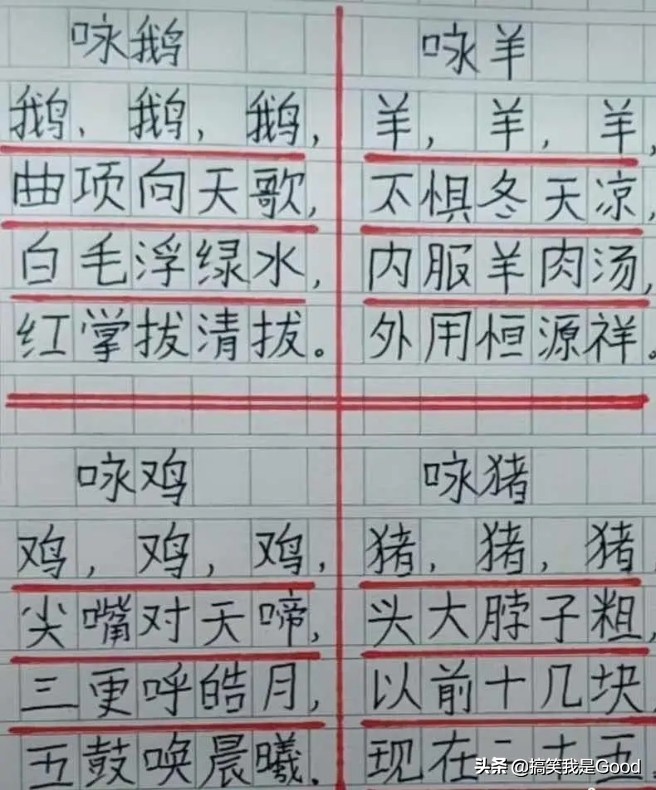 咏鹅
鹅、鹅，鹅，
曲项向天歌，
白毛浮绿水，
红掌拔清拔。
咏羊
羊，羊，羊，
不惧冬天凉，
内服羊肉汤，
外用恒源祥。
咏鸡
鸡，鸡，鸡，
尖嘴对天啼，
三更呼皓月，
五鼓唤晨曦.
咏猪
猪，猪，猪
头大脖子粗，
以前十几块
现在二十五
头条 @搞笑我是Good